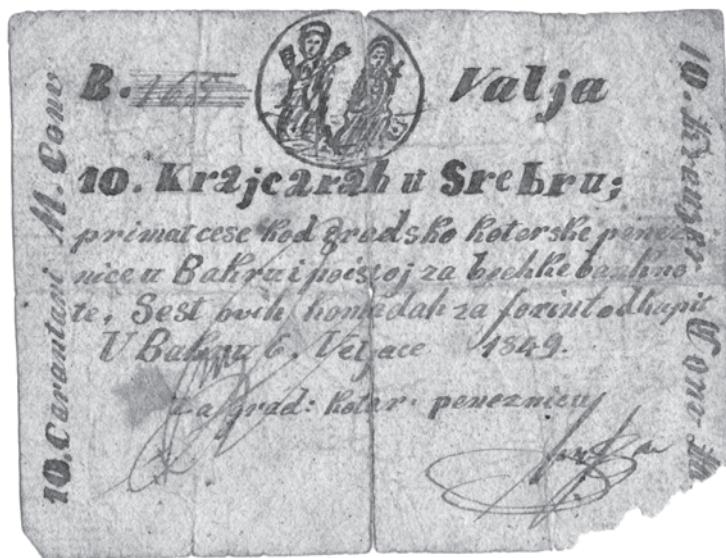 B. 165 Valja
10. Krajcarah u Srebru;
primat cese kod gradsko koterske penez
nice u Bakru i poistoj za bechke bankno
te, Sest ovih komadah za forint odkupit
U Bakru 6. Veljace 1849.
Za grad: kotar: peneznicu
10. Carantani M. Conv
10. Kreuzer Conv M